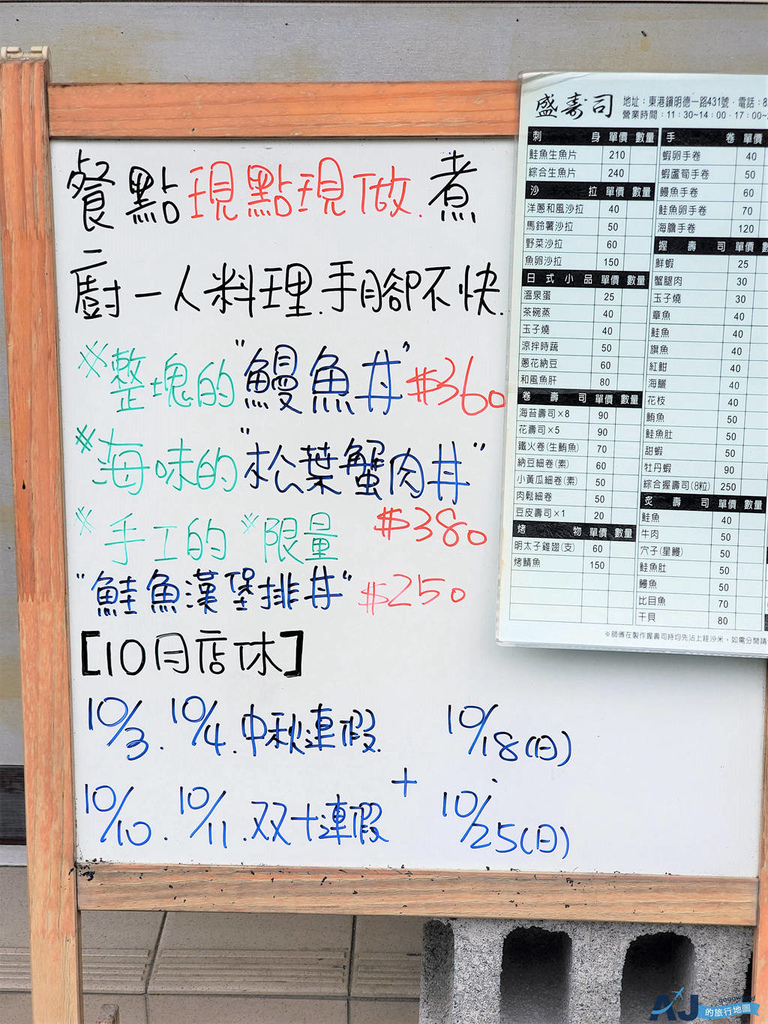 餐點現點現做.煮
廚一人料理.手腳不快.
※整塊的"鰻魚丼"$360
※海味的"松葉蟹肉丼"
$380
※手工的※限量
"鮭魚漢堡排丼"$250
[10月店休]
10/3.10/4.中秋連假 10/18(日)
+
10/10.10/11.双十連假 10/25(日)
盛壽司 地址:東港鎮明德一路431號·電話:8
營業時間:11:30~14:00·17:00~
刺身 單價 數量
鮭魚生魚片 210
綜合生魚片 240
沙拉 單價 數量
洋蔥和風沙拉 40
馬鈴薯沙拉 50
野菜沙拉 60
魚卵沙拉 150
日式小品 單價 數量
溫泉蛋 25
茶碗蒸 40
玉子燒 40
涼拌時蔬 50
蔥花納豆 60
和風魚肝 80
卷壽司 單價 數量
海苔壽司×8 90
花壽司×5 90
鐵火卷(生鮪魚) 70
納豆細卷(素) 60
小黃瓜細卷(素) 50
肉鬆細卷 50
豆皮壽司×1 20
烤物 單價 數量
明太子雞翅(支) 60
烤鯖魚 150
手卷 單價 數量
蝦卵手卷 40
蝦蘆筍手卷 50
鰻魚手卷 60
鮭魚卵手卷 70
海膽手卷 120
握壽司 單價 數量
鮮蝦 25
蟹腿肉 30
玉子燒 30
章魚 40
鮭魚 40
旗魚 40
紅魽 40
海鱺 40
花枝 40
鮪魚 50
鮭魚肚 50
甜蝦 50
牡丹蝦 90
綜合握壽司(8粒) 250
炙壽司 單價 數量
鮭魚 40
牛肉 50
穴子(星鰻) 50
鮭魚肚 50
鰻魚 50
比目魚 70
干貝 80
※師傅在製作握壽司時均先沾上哇沙米,如需分開請
AJ的旅行地圖